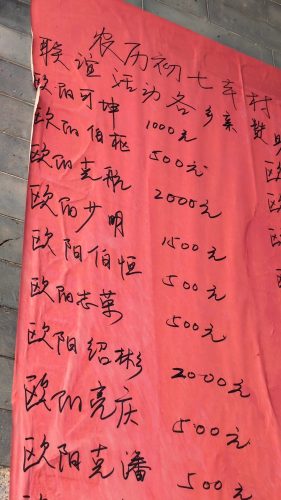 农历初七村
联谊活动各乡亲赞
欧阳可坤 1000元
欧阳伯枢 500元
欧阳克航 2000元
欧阳少明 1500元
欧阳伯恒 500元
欧阳志 500元
欧阳绍彬 2000元
欧阳亮庆 500元
欧阳克潘 500元